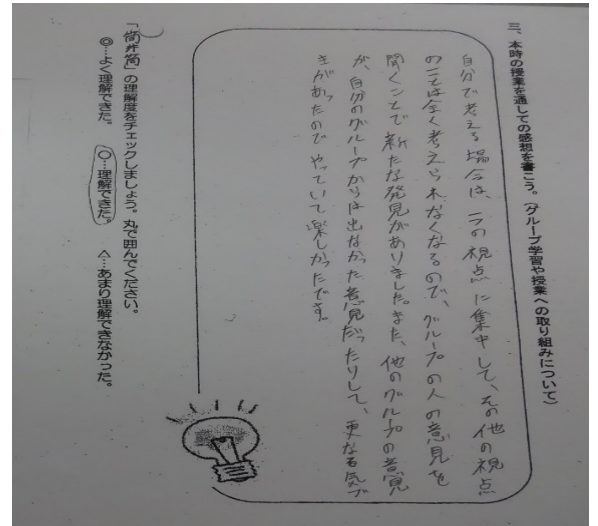 三、本時の授業を通しての感想を書こう。（グループ学習や授業への取り組みについて）
自分で考える場合は、一つの視点に集中して、その他の視点
のことは全く考えられなくなるので、グループの人の意見を
聞くことで新たな発見がありました。また、他のグループの意見
が、自分のグループからは出なかった意見だったりして、更なる気づ
きがあったのでやっていて楽しかったです。
「筒井筒」の理解度をチェックしましょう。丸で囲んでください。
◎…よく理解できた。　○…理解できた。　△…あまり理解できなかった。